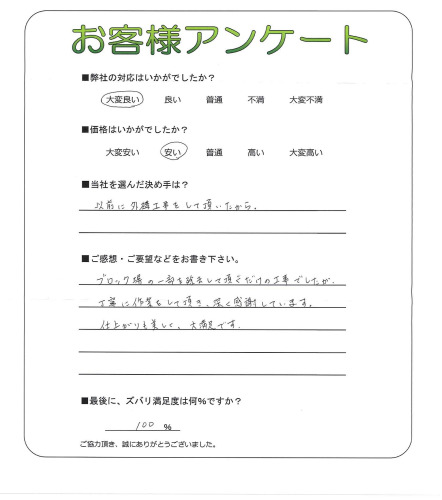 お客様アンケート
■弊社の対応はいかがでしたか？
大変良い 良い 普通 不満 大変不満
■価格はいかがでしたか？
大変安い 安い 普通 高い 大変高い
■当社を選んだ決め手は？
以前に外構工事をして頂いたから。
■ご感想・ご要望などをお書き下さい。
ブロック塀の一部を除去して頂くだけの工事でしたが、
丁寧に作業をして頂き、深く感謝しています。
仕上がりも美しく、大満足です。
■最後に、ズバリ満足度は何％ですか？
100 ％
ご協力頂き、誠にありがとうございました。